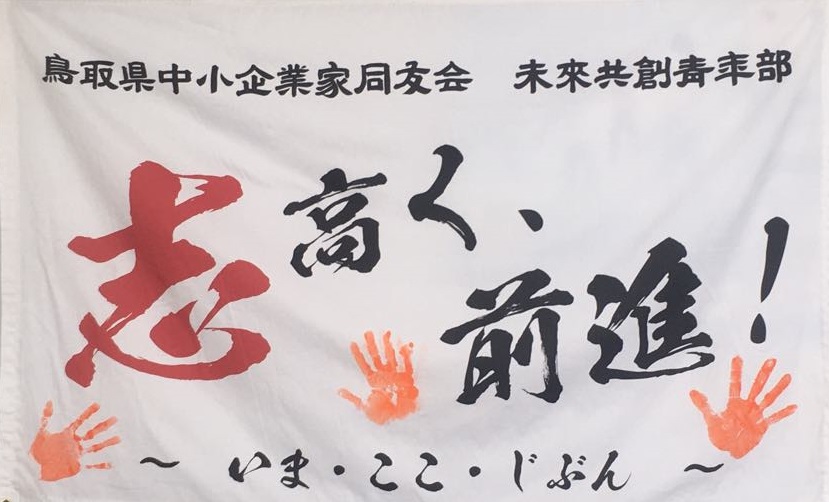 鳥取県中小企業家同友会　未來共創青年部
志高く、
前進！
～ いま・ここ・じぶん ～